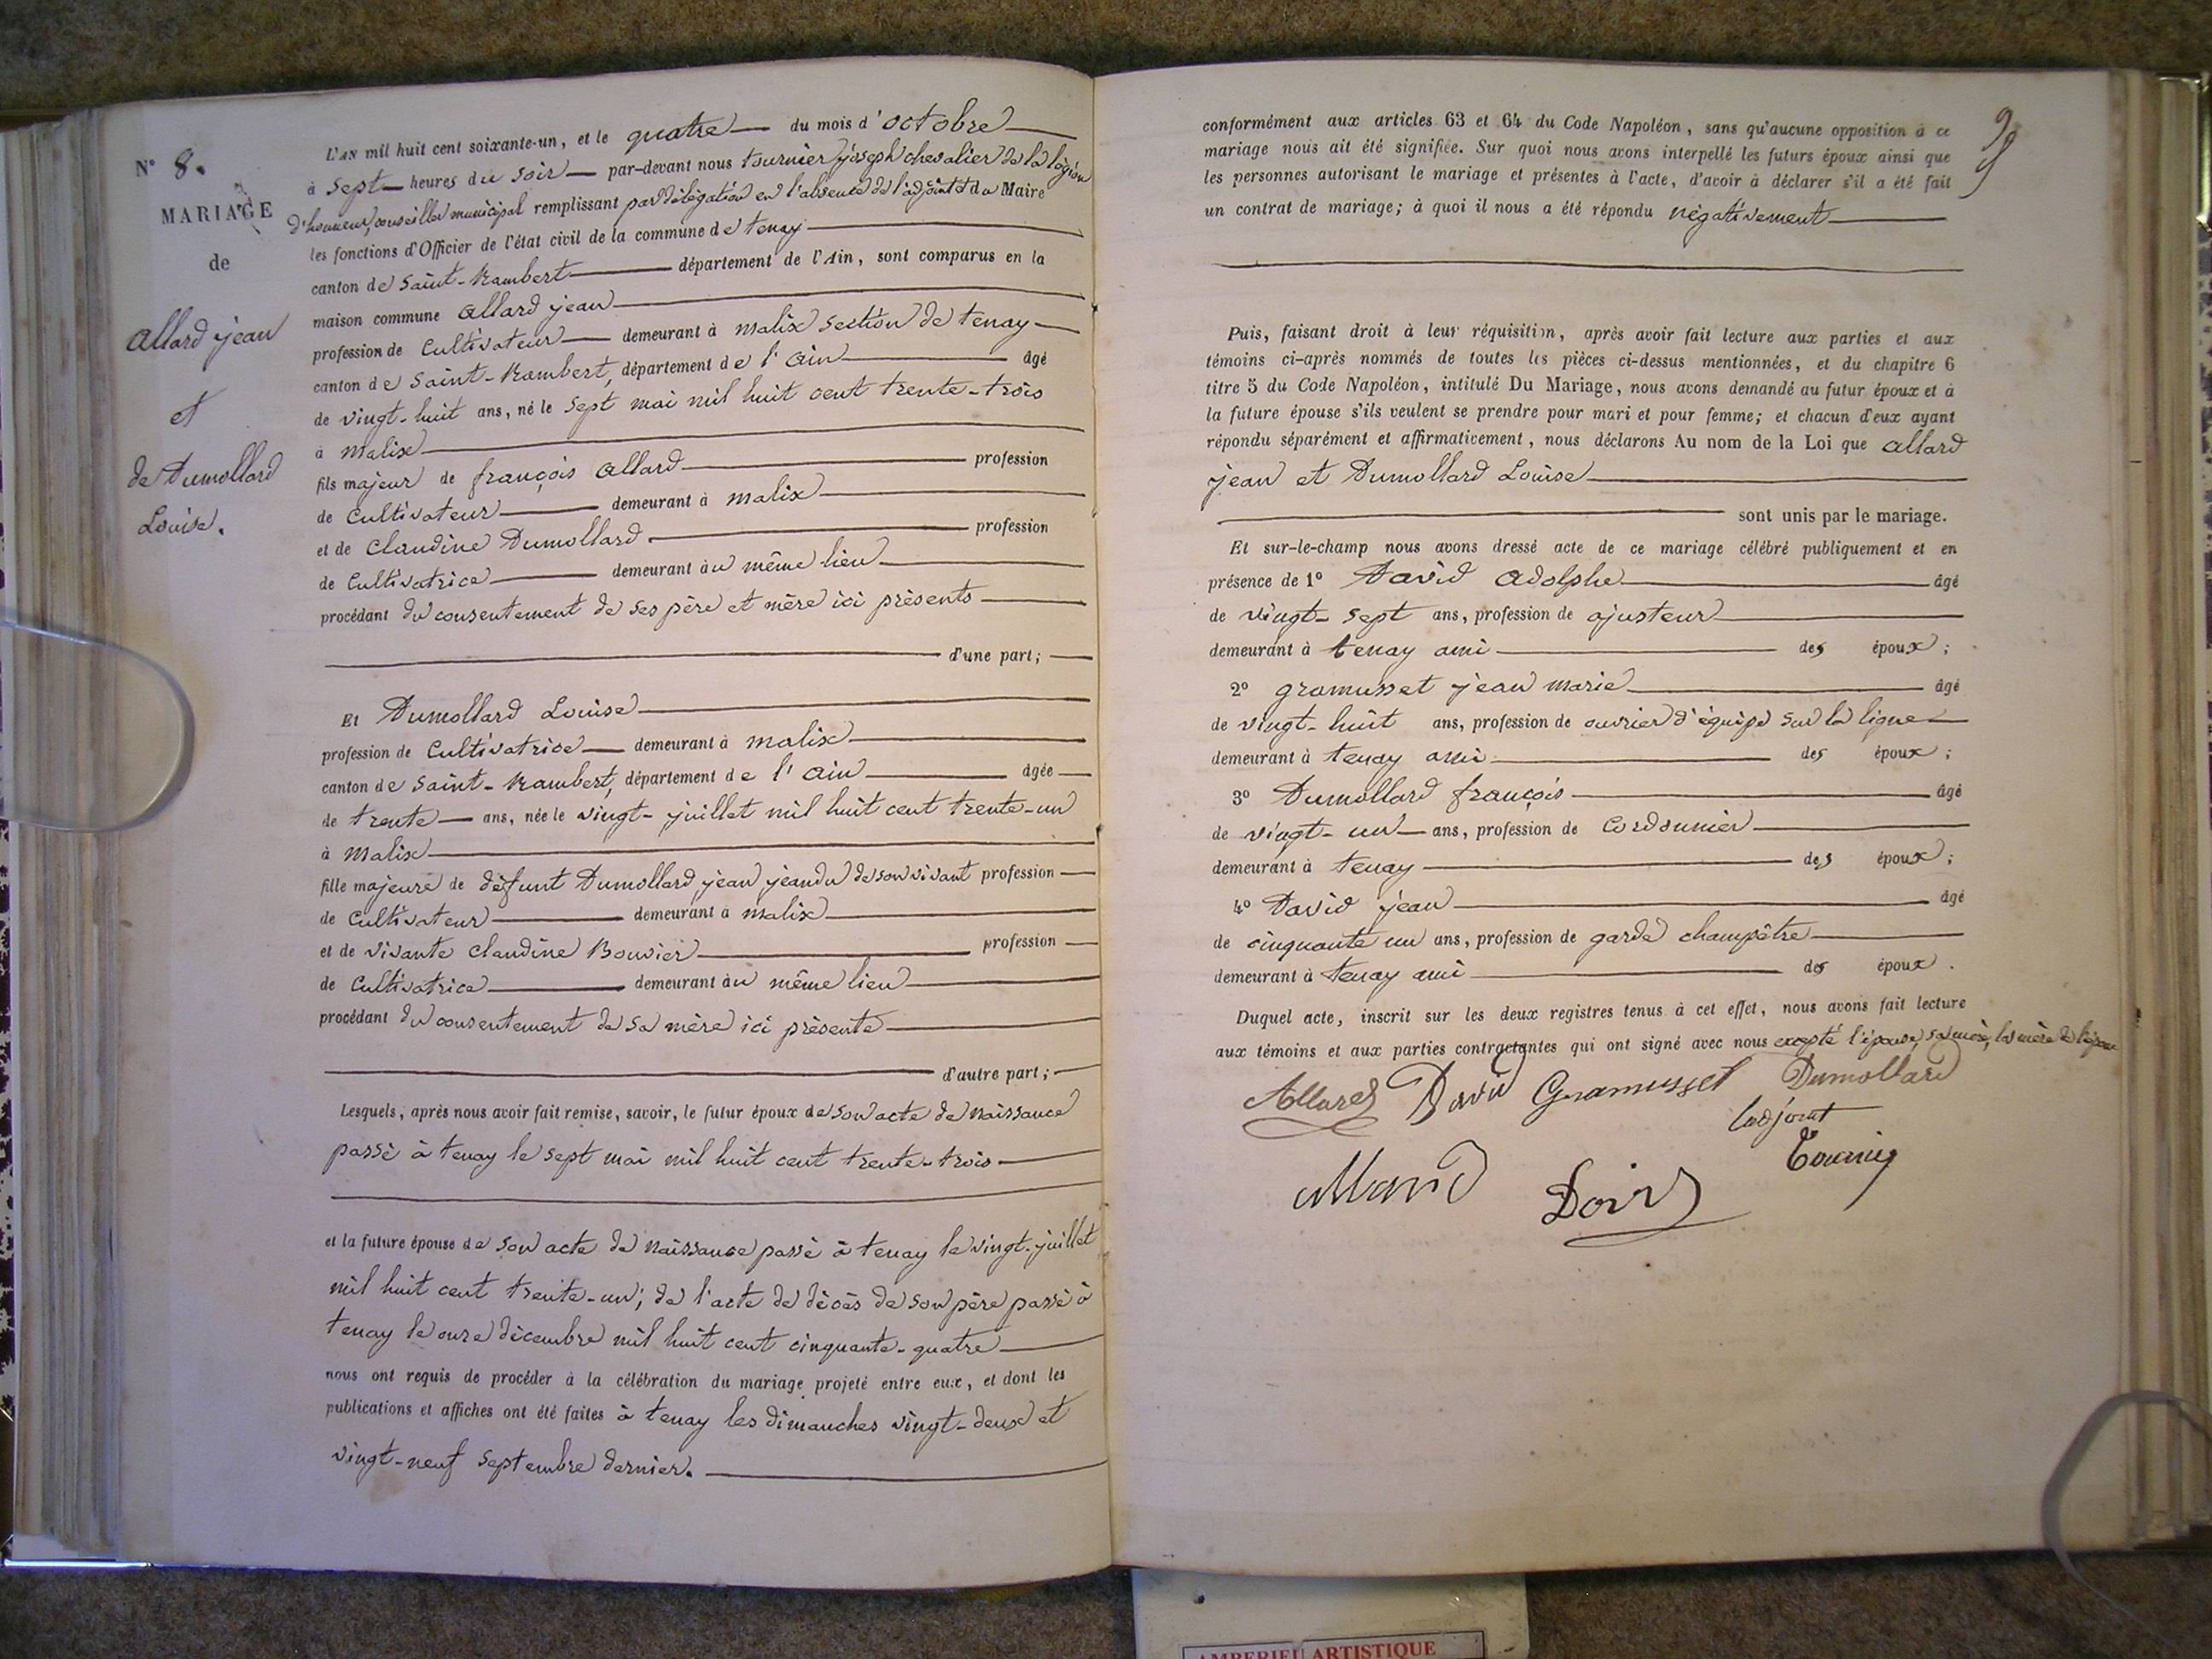 N° 8.
MARIAGE
de
Allard jean
et
de Dumollard
Louise.
L'AN mil huit cent soixante-un, et le quatre du mois d'octobre
à sept heures du soir par-devant nous tournier joseph chevalier de la légion
d'honneur, conseiller municipal remplissant par délégation en l'absence de l'adjoint et du Maire
les fonctions d'Officier de l'état civil de la commune de tenay
canton de saint-Rambert département de l'Ain, sont comparus en la
maison commune allard jean
profession de cultivateur demeurant à malix section de tenay
canton de saint-Rambert, département de l'ain âgé
de vingt-huit ans, né le sept mai mil huit cent trente-trois
à malix
fils majeur de françois allard profession
de cultivateur demeurant à malix
et de claudine Dumollard profession
de cultivatrice demeurant àu même lieu
procédant du consentement de ses père et mère ici présents
d'une part;
Et Dumollard Louise
profession de cultivatrice demeurant à malix
canton de saint-Rambert, département de l'ain âgée
de trente ans, née le vingt-juillet mil huit cent trente-un
à malix
fille majeure de défunt Dumollard jean jeandu de son vivant profession
de cultivateur demeurant à malix
et de vivante claudine Bouvier profession
de cultivatrice demeurant àu même lieu
procédant du consentement de sa mère ici présente
d'autre part;
Lesquels, après nous avoir fait remise, savoir, le futur époux de son acte de naissance
passé à tenay le sept mai mil huit cent trente-trois
et la future épouse de son acte de naissance passé à tenay le vingt-juillet
mil huit cent trente-un; de l'acte de décès de son père passé à
tenay le onze décembre mil huit cent cinquante-quatre
nous ont requis de procéder à la célébration du mariage projeté entre eux, et dont les
publications et affiches ont été faites à tenay les dimanches vingt-deux et
vingt-neuf septembre dernier.
conformément aux articles 63 et 64 du Code Napoléon, sans qu'aucune opposition à ce
mariage nous ait été signifiée. Sur quoi nous avons interpellé les futurs époux ainsi que
les personnes autorisant le mariage et présentes à l'acte, d'avoir à déclarer s'il a été fait
un contrat de mariage; à quoi il nous a été répondu négativement
Puis, faisant droit à leur réquisition, après avoir fait lecture aux parties et aux
témoins ci-après nommés de toutes les pièces ci-dessus mentionnées, et du chapitre 6
titre 5 du Code Napoléon, intitulé Du Mariage, nous avons demandé au futur époux et à
la future épouse s'ils veulent se prendre pour mari et pour femme; et chacun d'eux ayant
répondu séparément et affirmativement, nous déclarons Au nom de la Loi que allard
jean et Dumollard Louise
sont unis par le mariage.
Et sur-le-champ nous avons dressé acte de ce mariage célébré publiquement et en
présence de 1° David adolphe âgé
de vingt-sept ans, profession de ajusteur
demeurant à tenay ami des époux;
2° gramusset jean marie âgé
de vingt-huit ans, profession de ouvrier d'équipe sur la ligne
demeurant à tenay ami des époux;
3° Dumollard françois âgé
de vingt-un ans, profession de cordonnier
demeurant à tenay des époux;
4° David jean âgé
de cinquante un ans, profession de garde champêtre
demeurant à tenay ami des époux.
Duquel acte, inscrit sur les deux registres tenus à cet effet, nous avons fait lecture
aux témoins et aux parties contractantes qui ont signé avec nous excepté l'épouse, sa mère, la mère de l'époux
Allard David Gramusset Dumollard
ladjoint
AMBERIEU ARTISTIQUE